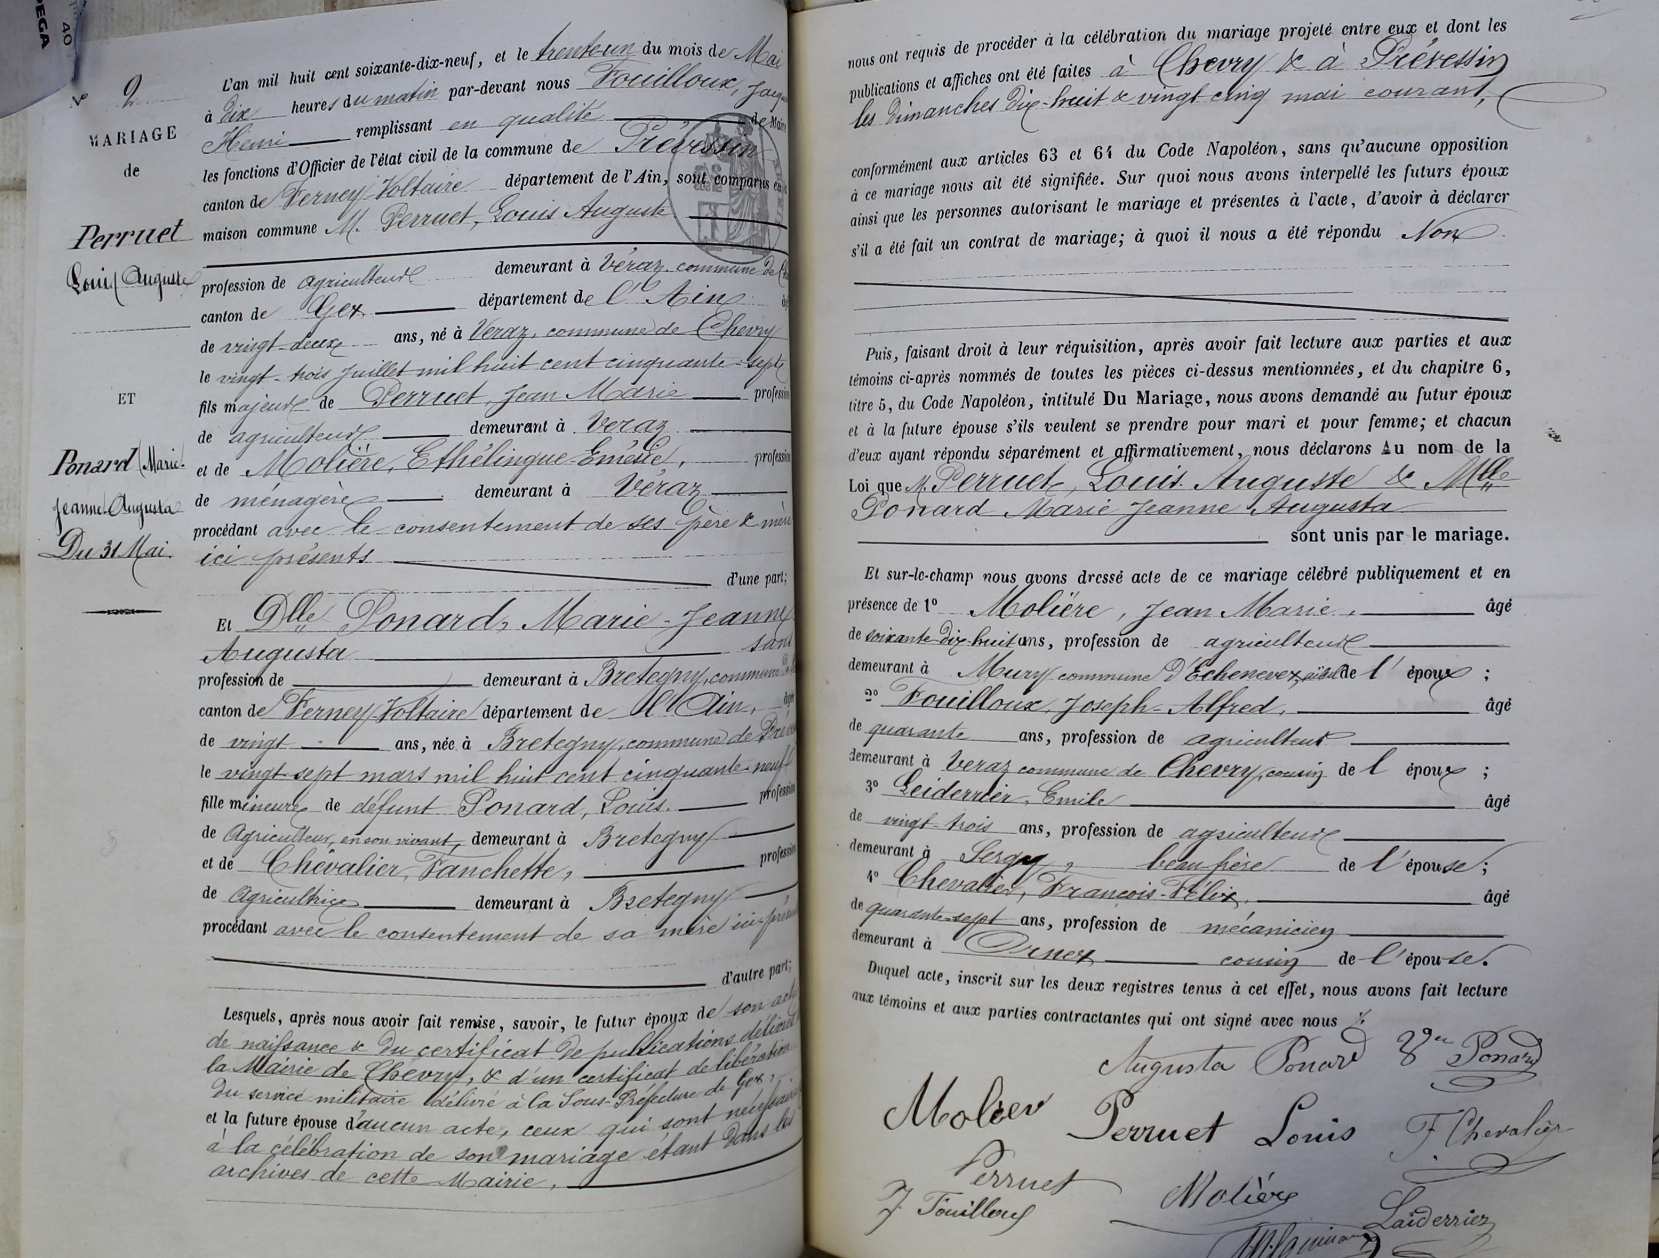 PEGA
40
N° 2
MARIAGE
de
Perruet
Louis Auguste
ET
Ponard Marie-
Jeanne-Augusta
Du 31 Mai
L'an mil huit cent soixante-dix-neuf, et le trente-un du mois de Mai
à dix heures du matin par-devant nous Fouilloux,
Henri remplissant en qualité de Maire
les fonctions d'Officier de l'état civil de la commune de Prévessin
canton de Ferney-Voltaire département de l'Ain, sont comparus en la
maison commune M. Perruet, Louis Auguste
profession de agriculteur demeurant à Véraz, commune de
canton de Gex département de l'Ain
de vingt-deux ans, né à Véraz, commune de Chevry
le vingt-trois Juillet mil huit cent cinquante-sept
fils majeur de Perruet, Jean Marie profession
de agriculteur demeurant à Véraz
et de Molière, Ethélingue-Emélie, profession
de ménagère demeurant à Véraz
procédant avec le consentement de ses père & mère
ici présents d'une part;
Et Dlle Ponard, Marie-Jeanne
Augusta sans
profession de demeurant à Bretegny, commune
canton de Ferney-Voltaire département de l'Ain,
de vingt ans, née à Bretegny, commune de
le vingt-sept mars mil huit cent cinquante-neuf
fille mineure de défunt Ponard, Louis. profession
de Agriculteur, en son vivant, demeurant à Bretegny
et de Chevalier, Fanchette, profession
de Agricultrice demeurant à Bretegny
procédant avec le consentement de sa mère ici
d'autre part;
Lesquels, après nous avoir fait remise, savoir, le futur époux de son acte
de naissance & du certificat de publications délivré
la Mairie de Chevry, & d'un certificat de libération
du service militaire délivré à la Sous-Préfecture de Gex,
et la future épouse d'aucun acte, ceux qui sont
à la célébration de son mariage étant dans les
archives de cette Mairie.
nous ont requis de procéder à la célébration du mariage projeté entre eux et dont les
publications et affiches ont été faites à Chevry & à Prévessin
les dimanches dix-huit & vingt cinq mai courant,
conformément aux articles 63 et 64 du Code Napoléon, sans qu'aucune opposition
à ce mariage nous ait été signifiée. Sur quoi nous avons interpellé les futurs époux
ainsi que les personnes autorisant le mariage et présentes à l'acte, d'avoir à déclarer
s'il a été fait un contrat de mariage; à quoi il nous a été répondu Non
Puis, faisant droit à leur réquisition, après avoir fait lecture aux parties et aux
témoins ci-après nommés de toutes les pièces ci-dessus mentionnées, et du chapitre 6,
titre 5, du Code Napoléon, intitulé Du Mariage, nous avons demandé au futur époux
et à la future épouse s'ils veulent se prendre pour mari et pour femme; et chacun
d'eux ayant répondu séparément et affirmativement, nous déclarons Au nom de la
Loi que M. Perruet, Louis Auguste & Mlle
Ponard Marie Jeanne Augusta
sont unis par le mariage.
Et sur-le-champ nous avons dressé acte de ce mariage célébré publiquement et en
présence de 1° Molière, Jean Marie, âgé
de soixante-dix-huit ans, profession de agriculteur
demeurant à Mury commune D'Echenevex, de l'époux;
2° Fouilloux, Joseph-Alfred, âgé
de quarante ans, profession de agriculteur
demeurant à Veraz commune de Chevry, cousin de l époux;
3° Leiderrier, Emile âgé
de vingt-trois ans, profession de agriculteur
demeurant à Sergy, beau frère de l'épouse;
4° Chevalier, François-Félix, âgé
de quarante-sept ans, profession de mécanicien
demeurant à Ornex cousin de l'épouse.
Duquel acte, inscrit sur les deux registres tenus à cet effet, nous avons fait lecture
aux témoins et aux parties contractantes qui ont signé avec nous
Augusta Ponard Vve Ponard
Molier Perruet Louis F. Chevalier
Perruet Molière
J. Fouilloux Laiderrier